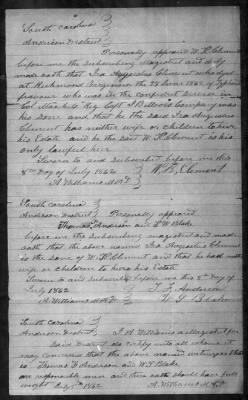 South Carolina }
Anderson District } Personally appeared W. P. Clement
before me the subscribing Magistrate and duly
made oath that Ira Augustus Clement who died
at Richmond Virginia on the 28 June 1862 of Typhoid
who was in the Confederate Service in
Col. Regt. Capt. Company was
his Sone and that he the said Ira Augustus
Clement has neither wife or children to heir
his Estate and he the said W. P. Clement is his
only lawful heir
Sworn to and subscribed before me this
8th Day of July 1862 } W. P. Clement
A Williams M.P. }
South Carolina }
Anderson District } Personally appeared
Thomas Anderson and W. T. Blake
before me the subscribing magistrate and made
oath that the above named Ira Augustus Clement
is the Sone of W. P. Clement and that he had neither
wife or children to heir his Estate
Sworn to and subscribed before me this 8th Day of
July 1862 } Anderson
A Williams M.P. } W. T. Blake
South Carolina }
Anderson District } Williams a magistrate for
Said District do certify unto all whom it
may concern that the above named witnesses that
is Thomas Anderson and W. T. Blake
are responsible men and their oath should have full
weight July 8th 1862 A Williams M.P.